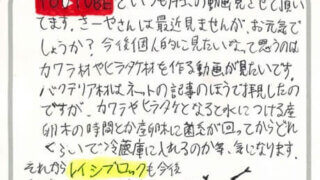 YOUTUBEでいつも序の動画見させて頂い
てます。さーやさんは最近見ませんが、お元気で
しょうか？今後個人的に見たいな、って思うのは
カワラ材やヒラタケ材を作る動画が見たいです。
バクテリア材はネットの記事のほうで拝見したの
ですが、カワラやヒラタケとなると水につける産
卵木の時間とか産卵床に菌糸が回ってからどれ
くらいで冷蔵庫に入れるのか等、気になります。
それからレイシブロックも今後